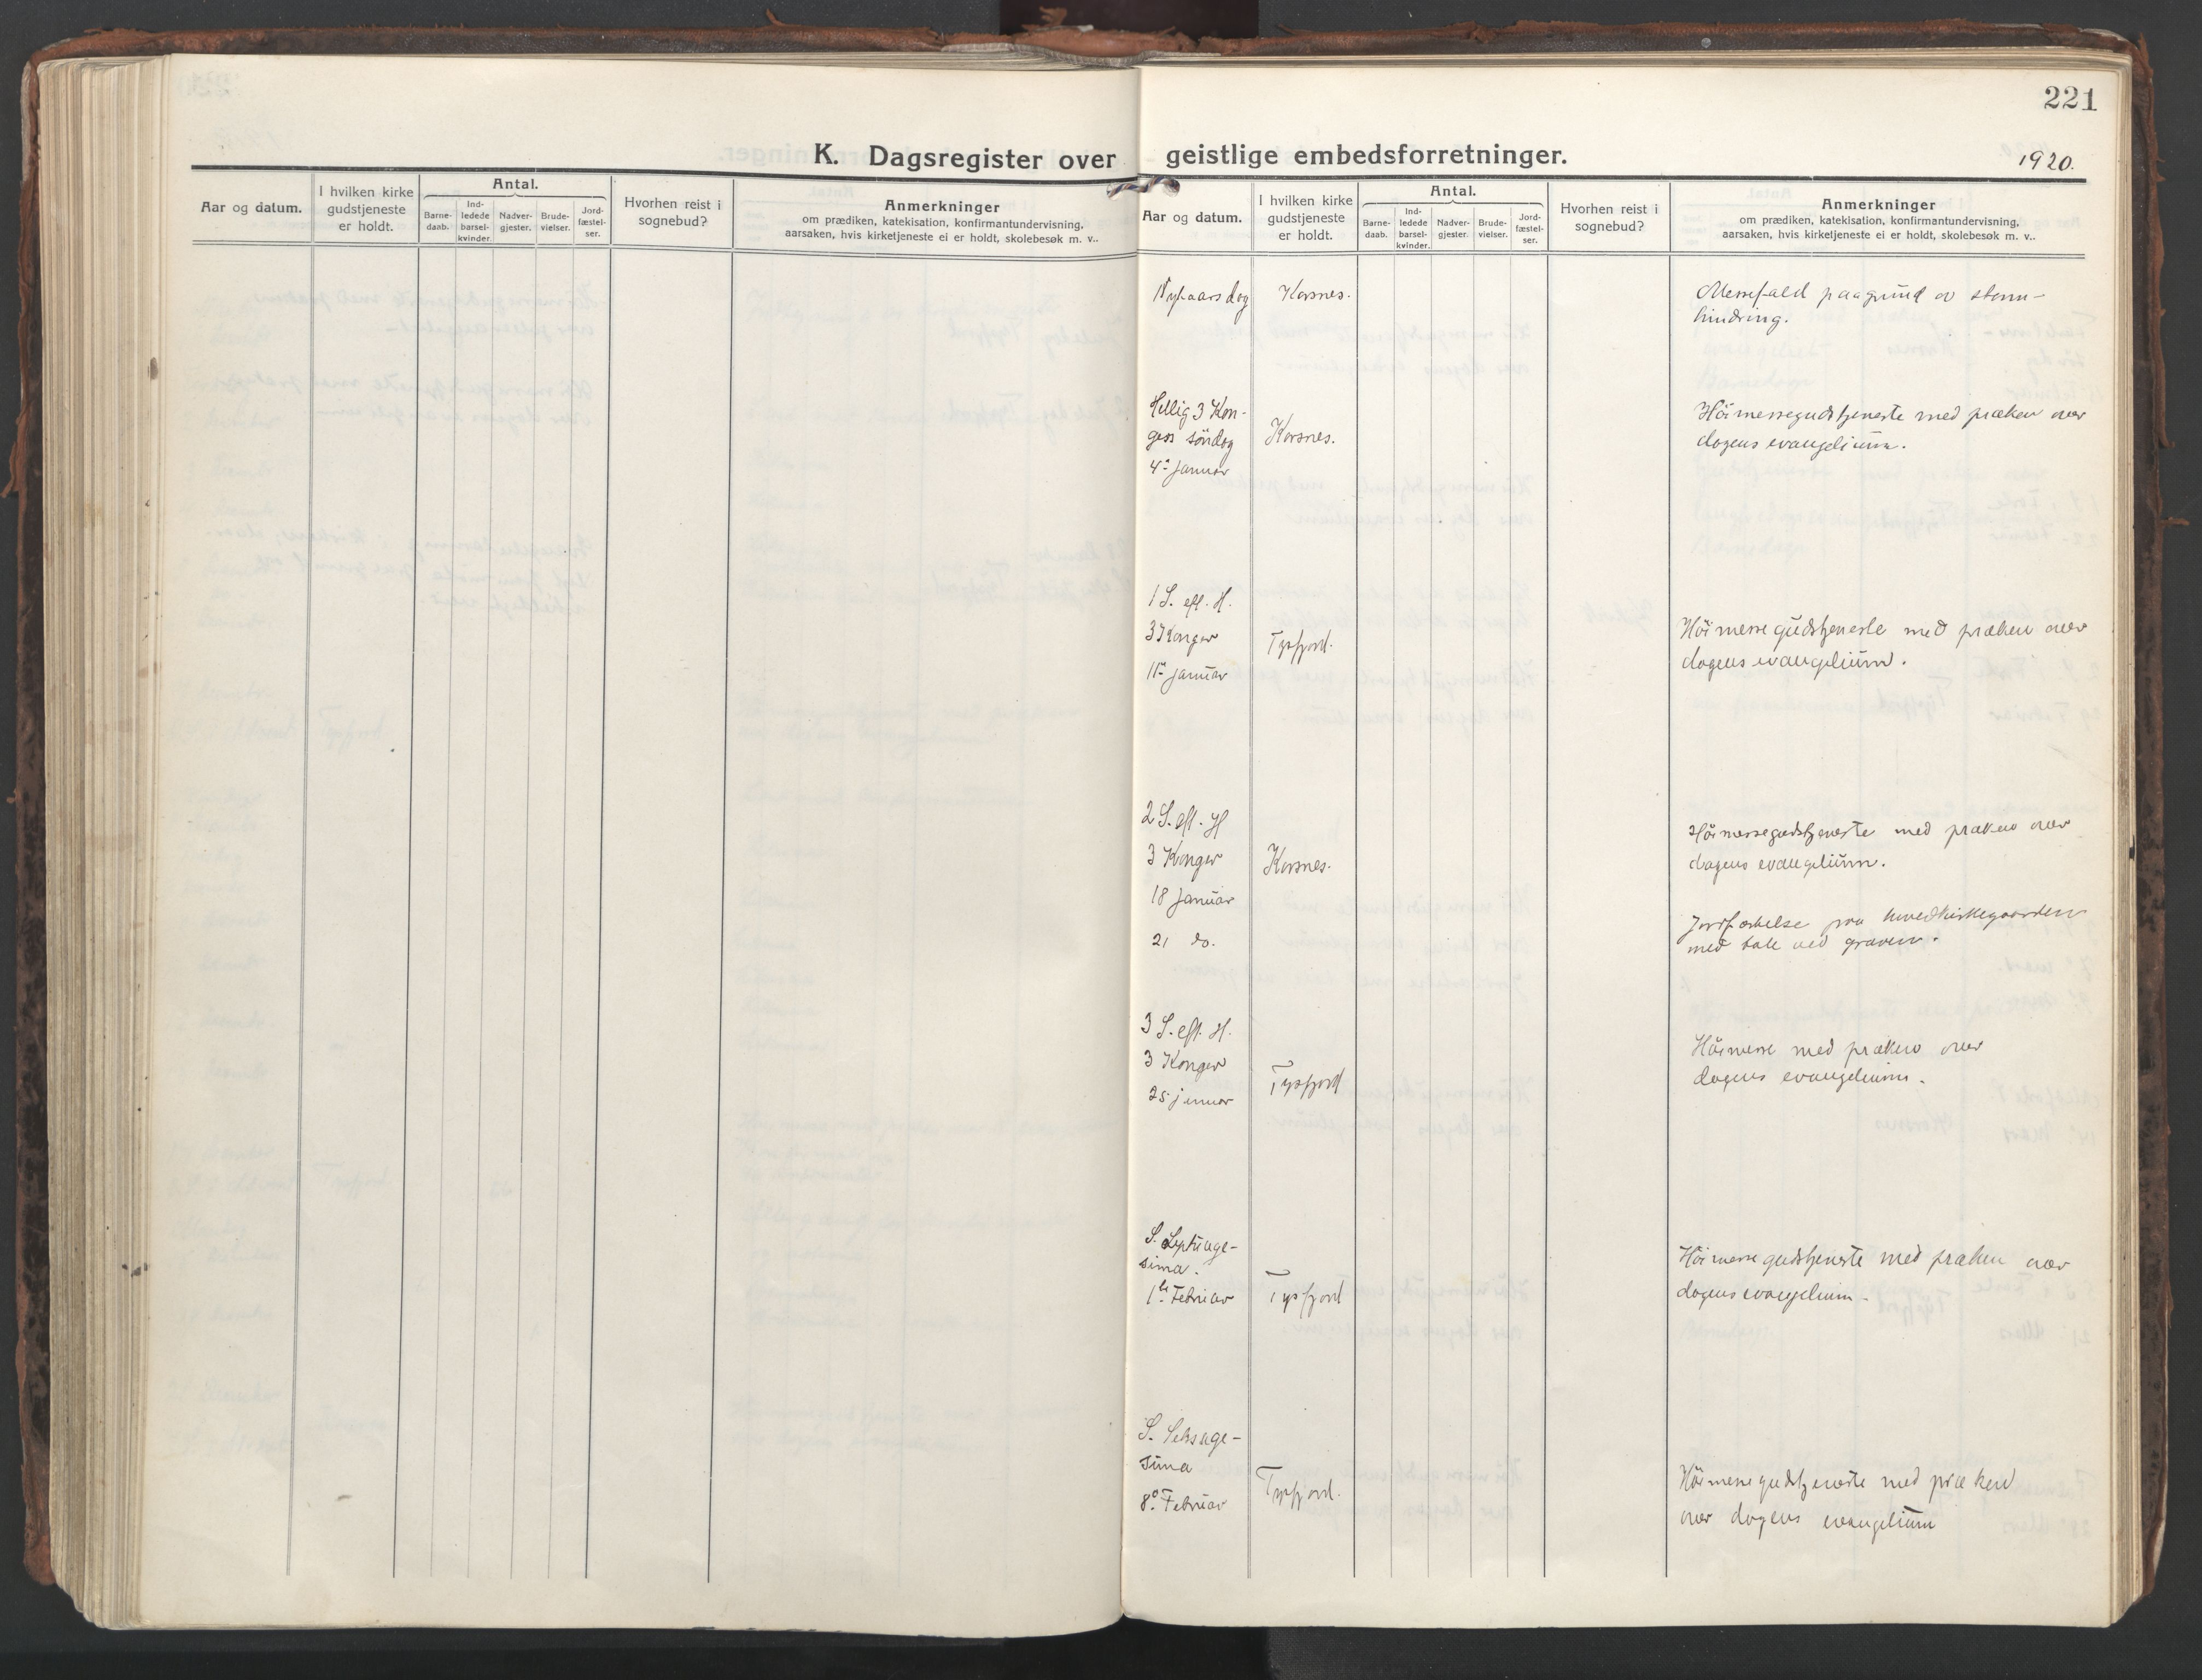 221
K. Dagsregister over geistlige embedsforretninger.
1920.
Aar og datum.
I hvilken kirke
gudstjeneste
er holdt.
Antal.
Barne-
daab.
Ind-
ledede
barsel-
kvinder.
Nadver-
gjester.
Brude-
vielser.
Jord-
fæstel-
ser.
Hvorhen reist i
sognebud?
Anmerkninger
om prædiken, katekisation, konfirmantundervisning,
aarsaken, hvis kirketjeneste ei er holdt, skolebesøk m. v..
Aar og datum.
I hvilken kirke
gudstjeneste
er holdt.
Antal.
Barne-
daab.
Ind-
ledede
barsel-
kvinder.
Nadver-
gjester.
Brude-
vielser.
Jord-
fæstel-
ser.
Hvorhen reist i
sognebud?
Anmerkninger
om prædiken, katekisation, konfirmantundervisning,
aarsaken, hvis kirketjeneste ei er holdt, skolebesøk m. v..
Nytaarsdag Korsnes. Messefald paagrund av storm-
hindring.
Hellig 3 Kon-
gers söndag Korsnes. Höimessegudstjeneste med præken over
4. Januar dagens evangelium.
1 S. eft. H.
3 Konger Tysfjord. Höimessegudstjeneste med præken over
11. Januar dagens evangelium.
2 S. eft. H
3 Konger Korsnes. Höimessegudstjeneste med præken over
dagens evangelium.
18 Januar
21 do. Jordfæstelse paa hovedkirkegaarden
med tale ved graven.
3 S. eft. H.
3 Konger Tysfjord Höimesse med præken over
25 januar dagens evangelium.
S. Septuage-
sima. Höimessegudstjeneste med præken over
1ste Februar Tysfjord dagens evangelium.
S. Seksage-
sima Tysfjord. Höimessegudstjeneste med præken
8. Februar over dagens evangelium